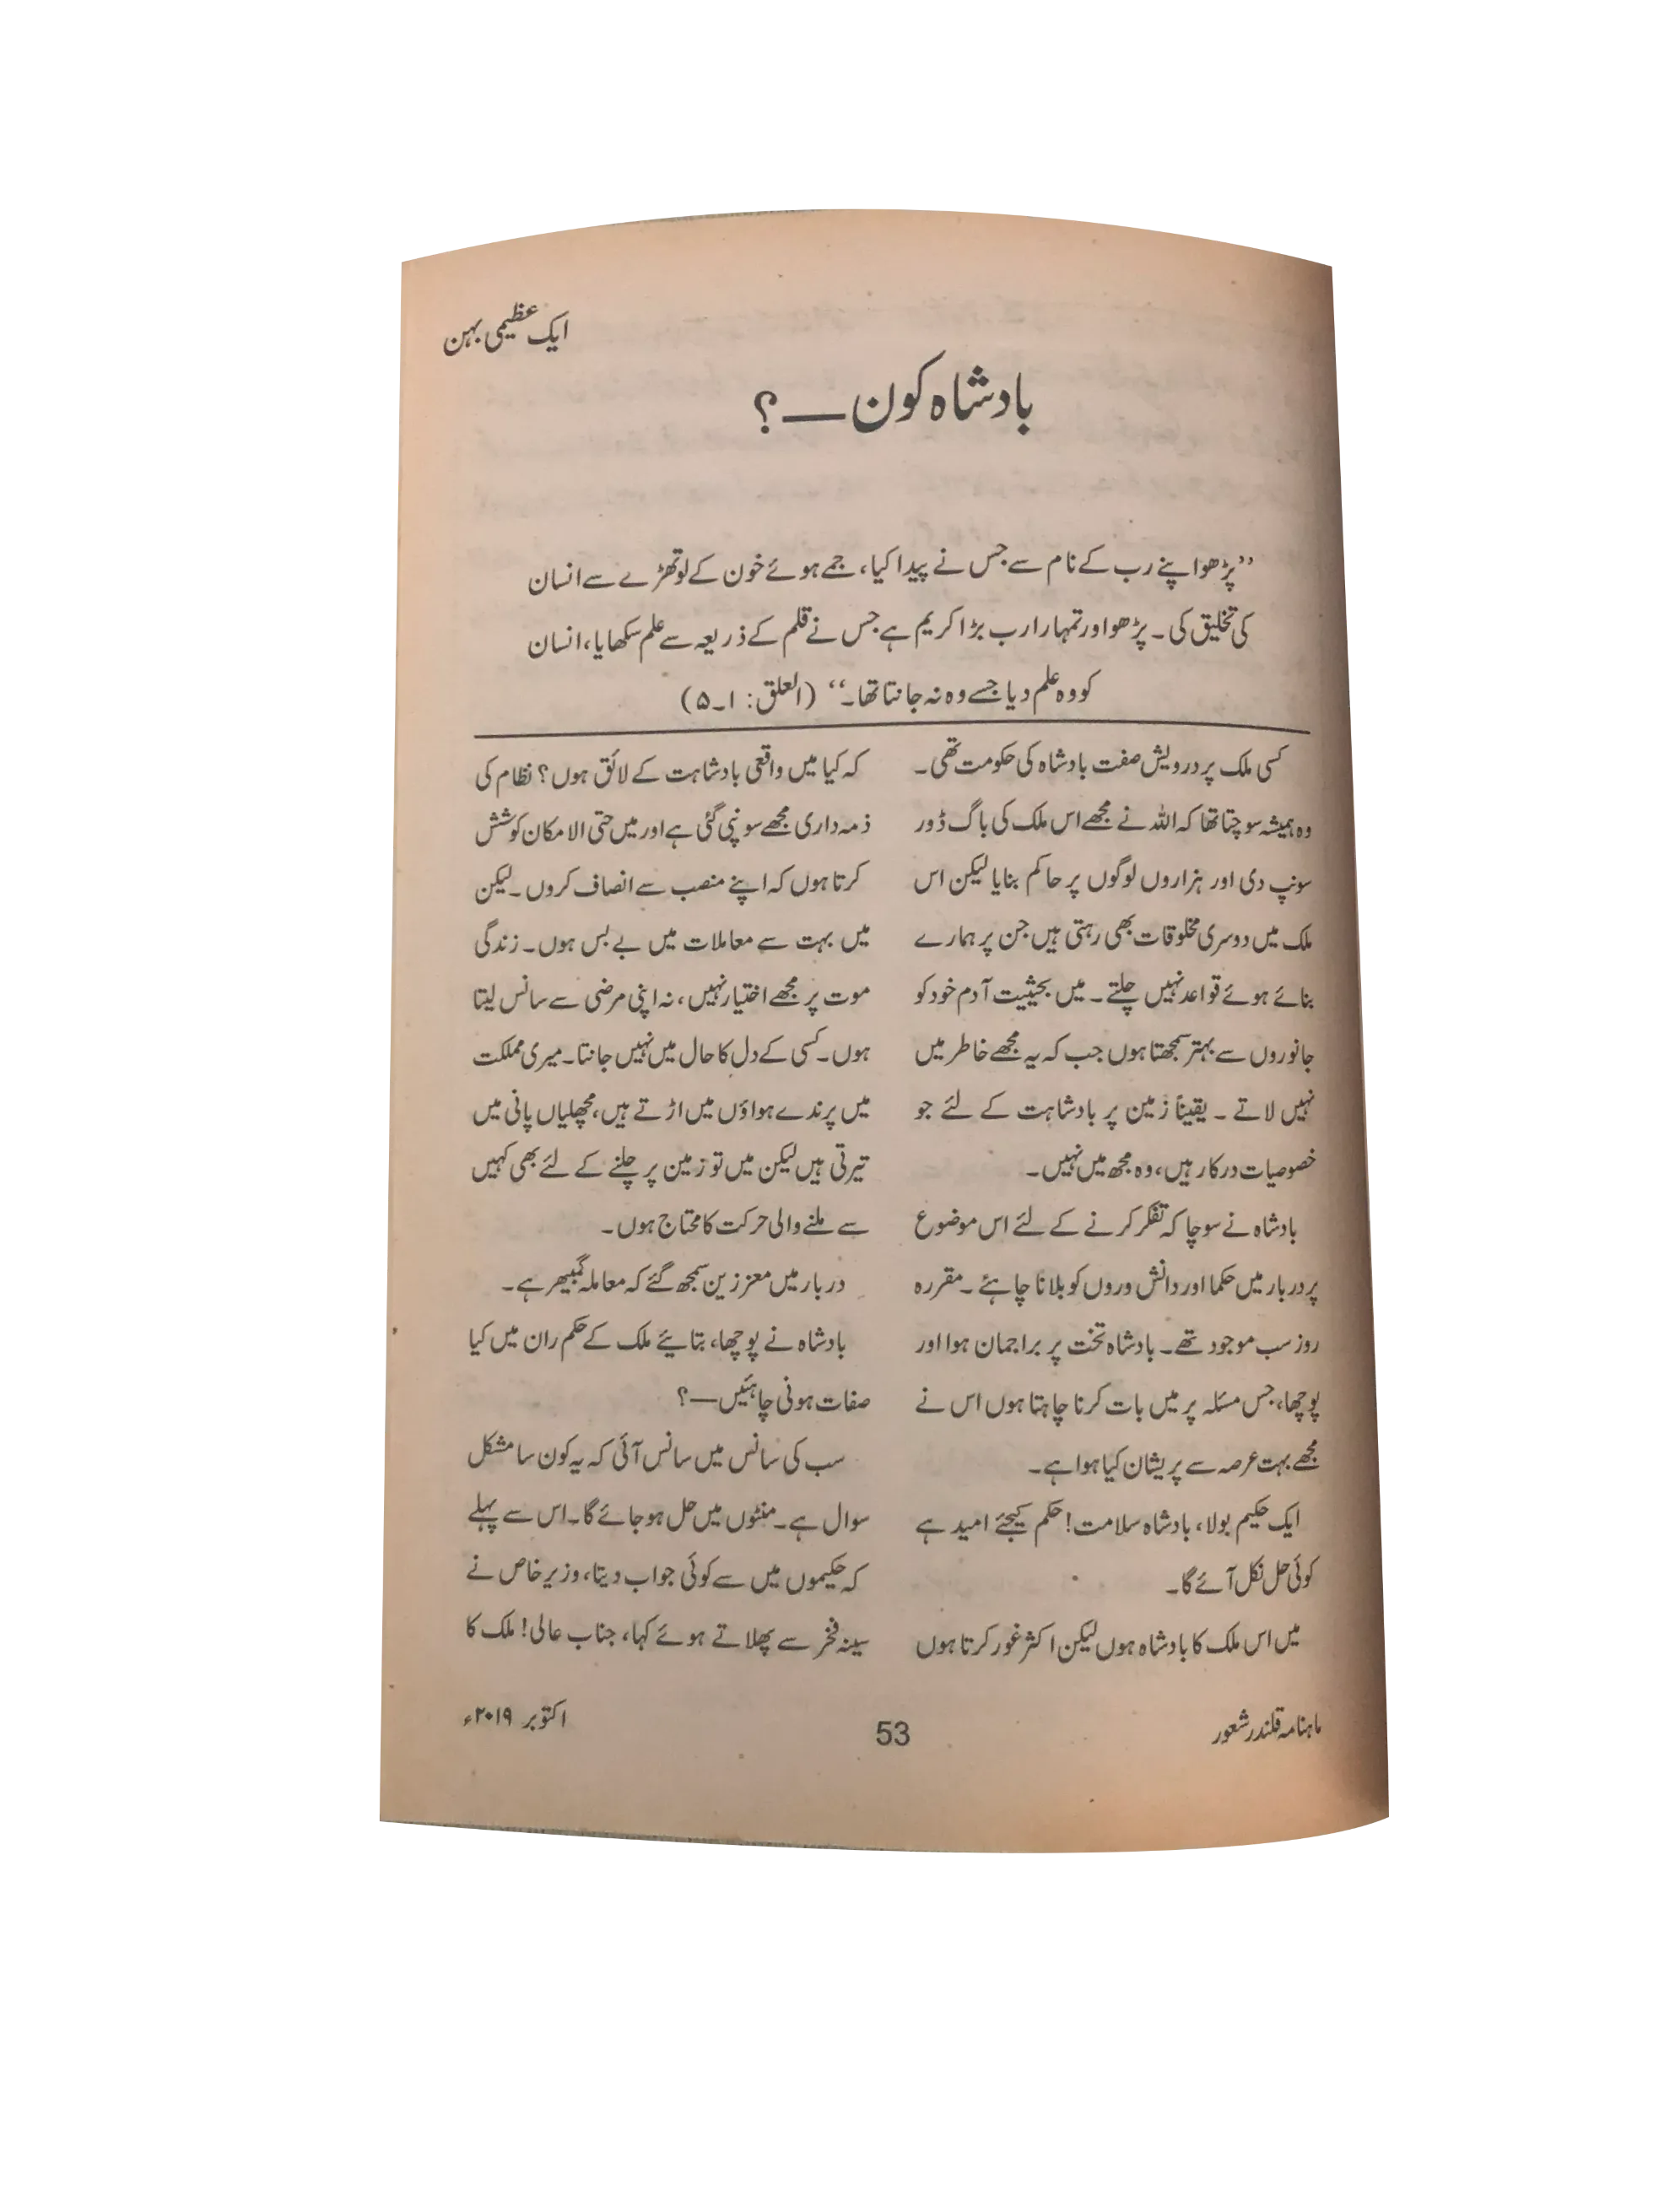 ایک عظیمی بہن
بادشاہ کون ــــ؟
’’پڑھو اپنے رب کے نام سے جس نے پیدا کیا، جمے ہوئے خون کے لوتھڑے سے انسان
کی تخلیق کی۔ پڑھو اور تمہارا رب بڑا کریم ہے جس نے قلم کے ذریعہ سے علم سکھایا، انسان
کو وہ علم دیا جسے وہ نہ جانتا تھا۔‘‘ (العلق: ۱۔۵)
کسی ملک پر درویش صفت بادشاہ کی حکومت تھی۔
وہ ہمیشہ سوچتا تھا کہ اللہ نے مجھے اس ملک کی باگ ڈور
سونپ دی اور ہزاروں لوگوں پر حاکم بنایا لیکن اس
ملک میں دوسری مخلوقات بھی رہتی ہیں جن پر ہمارے
بنائے ہوئے قواعد نہیں چلتے۔ میں بحیثیت آدم خود کو
جانوروں سے بہتر سمجھتا ہوں جب کہ یہ مجھے خاطر میں
نہیں لاتے ۔ یقیناً زمین پر بادشاہت کے لئے جو
خصوصیات درکار ہیں، وہ مجھ میں نہیں۔
بادشاہ نے سوچا کہ تفکر کرنے کے لئے اس موضوع
پر دربار میں حکما اور دانش وروں کو بلانا چاہئے ۔ مقررہ
روز سب موجود تھے۔ بادشاہ تخت پر براجمان ہوا اور
پوچھا، جس مسئلہ پر میں بات کرنا چاہتا ہوں اس نے
مجھے بہت عرصہ سے پریشان کیا ہوا ہے۔
ایک حکیم بولا، بادشاہ سلامت! حکم کیجئے امید ہے
کوئی حل نکل آئے گا۔
میں اس ملک کا بادشاہ ہوں لیکن اکثر غور کرتا ہوں
کہ کیا میں واقعی بادشاہت کے لائق ہوں؟ نظام کی
ذمہ داری مجھے سونپی گئی ہے اور میں حتی الامکان کوشش
کرتا ہوں کہ اپنے منصب سے انصاف کروں۔ لیکن
میں بہت سے معاملات میں بے بس ہوں۔ زندگی
موت پر مجھے اختیار نہیں، نہ اپنی مرضی سے سانس لیتا
ہوں۔ کسی کے دل کا حال میں نہیں جانتا۔ میری مملکت
میں پرندے ہواؤں میں اڑتے ہیں، مچھلیاں پانی میں
تیرتی ہیں لیکن میں تو زمین پر چلنے کے لئے بھی کہیں
سے ملنے والی حرکت کا محتاج ہوں۔
دربار میں معززین سمجھ گئے کہ معاملہ گمبھیر ہے۔
بادشاہ نے پوچھا، بتائیے ملک کے حکم ران میں کیا
صفات ہونی چاہئیں—؟
سب کی سانس میں سانس آئی کہ یہ کون سا مشکل
سوال ہے۔ منٹوں میں حل ہو جائے گا۔ اس سے پہلے
کہ حکیموں میں سے کوئی جواب دیتا، وزیر خاص نے
سینہ فخر سے پھلاتے ہوئے کہا، جناب عالی! ملک کا
ماہنامہ قلندر شعور
53
اکتوبر ۲۰۱۹ء